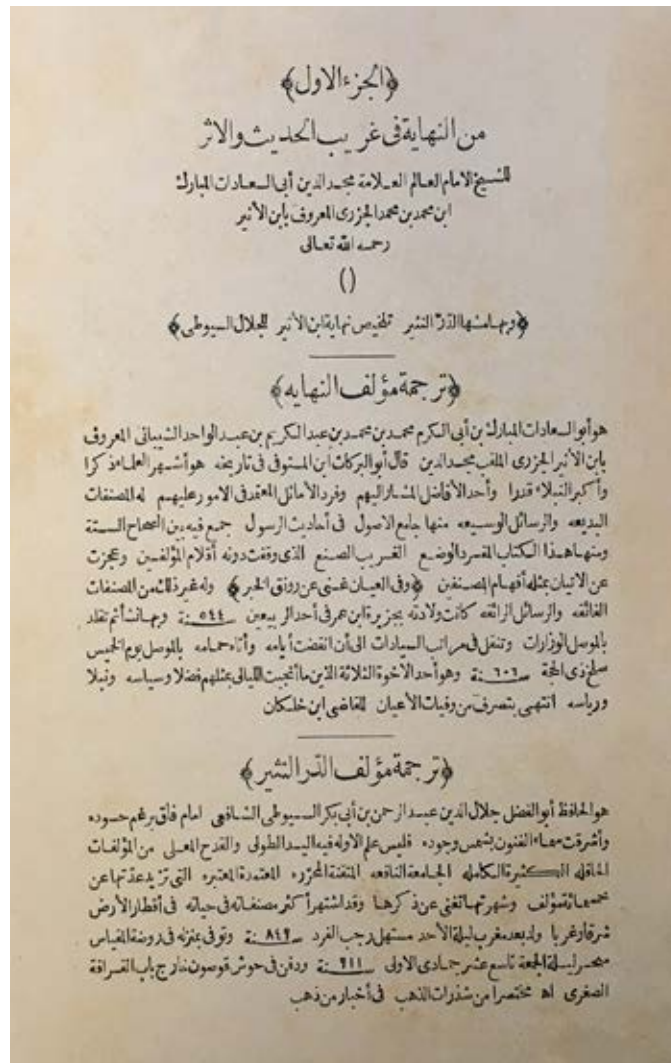 ﴿الجزء الاول﴾
من النهاية فى غريب الحديث والاثر
للشيخ الامام العالم العلامة مجد الدين أبى السعادات المبارك
ابن محمد بن محمد الجزرى المعروف بابن الأثير
رحمه الله تعالى
()
﴿وبهامشها الدر النثير تلخيص نهاية ابن الأثير للجلال السيوطى﴾
﴿ترجمة مؤلف النهايه﴾
هو أبو السعادات المبارك بن أبى الكرم محمد بن محمد بن عبد الكريم بن عبد الواحد الشيبانى المعروف
بابن الأثير الجزرى الملقب مجد الدين قال أبو البركات ابن المستوفى فى تاريخه هو أشهر العلماء ذكرا
وأكبر النبلاء قدرا وأحد الأفاضل المشار اليهم وفرد الأماثل المعتمد فى الامور عليهم له المصنفات
البديعه والرسائل الوسيعه منها جامع الاصول فى أحاديث الرسول جمع فيه بين الصحاح الستة
ومنها هذا الكتاب المفرد الوضع الغريب الصنع الذى وقفت دونه أقلام المؤلفين وعجزت
عن الاتيان بمثله أفهام المصنفين ﴿وفى العيان غنى عن رونق الخبر﴾ وله غير ذلك من المصنفات
الفائقه والرسائل الرائقه كانت ولادته بجزيرة ابن عمر فى أحد الربيعين سنة ٥٤٤ وبها نشأ ثم تقلد
بالموصل الوزارات وتنقل فى مراتب السيادات الى أن انقضت أيامه وأتاه حمامه بالموصل يوم الخميس
سلخ ذى الحجة سنة ٦٠٦ وهو أحد الاخوة الثلاثة الذين ما أنجبت الليالى بمثلهم فضلا وسياسه ونبلا
ورياسه انتهى بتصرف من وفيات الأعيان للقاضى ابن خلكان
﴿ترجمة مؤلف الدر النثير﴾
هو الحافظ أبو الفضل جلال الدين عبد الرحمن بن أبى بكر السيوطى الشافعى امام فاق برغم حسوده
وأشرقت سماء الفنون بشمس وجوده فليس علم الا وله فيه اليد الطولى والقدح المعلى من المؤلفات
الحافله الكثيرة الكامله الجامعة النافعه المتقنة المحرره المعتمدة المعتبره التى تزيد عدتها عن
خمسمائة مؤلف وشهرتها تغنى عن ذكرها وقد اشتهر أكثر مصنفاته فى حياته فى أقطار الأرض
شرقا وغربا ولد بعد مغرب ليلة الأحد مستهل رجب الفرد سنة ٨٤٩ وتوفى بمنزله فى روضة المقياس
سحر ليلة الجمعة تاسع عشر جمادى الاولى سنة ٩١١ ودفن فى حوش قوصون خارج باب القرافة
الصغرى اه مختصرا من شذرات الذهب فى أخبار من ذهب